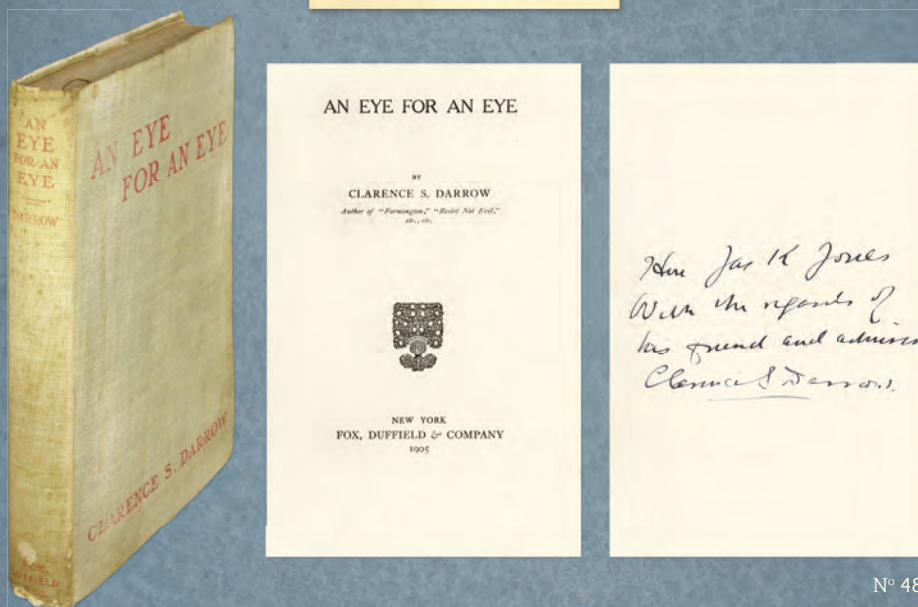 AN
EYE
FOR AN
EYE
DARROW
FOX,
DUFFIELD
AN EYE
FOR AN EYE
CLARENCE S. DARROW
AN EYE FOR AN EYE
BY
CLARENCE S. DARROW
Author of "Farmington," "Resist Not Evil,"
etc., etc.
NEW YORK
FOX, DUFFIELD & COMPANY
1905
Hon Jas K Jones
With the regards of
his friend and admirer
Clarence S Darrow.
Nº 48